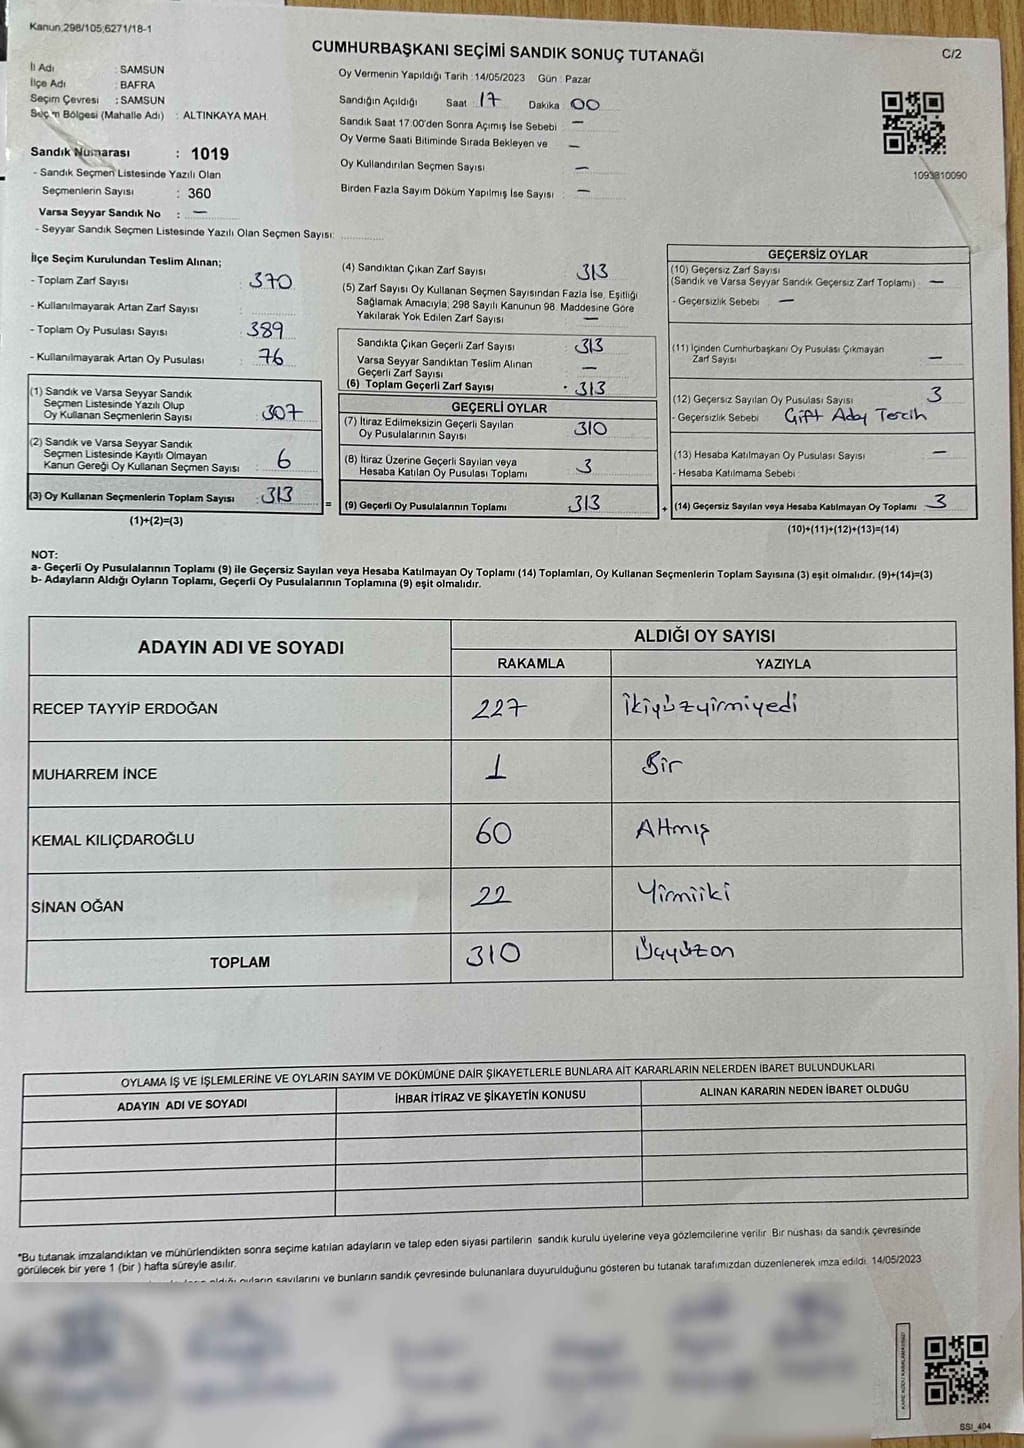 Kanun,298/105,6271/18-1
CUMHURBAŞKANI SEÇİMİ SANDIK SONUÇ TUTANAĞI
C/2
İl Adı : SAMSUN
İlçe Adı : BAFRA
Seçim Çevresi : SAMSUN
Seçim Bölgesi (Mahalle Adı) : ALTINKAYA MAH.
Sandık Numarası : 1019
- Sandık Seçmen Listesinde Yazılı Olan
Seçmenlerin Sayısı : 360
Varsa Seyyar Sandık No : —
- Seyyar Sandık Seçmen Listesinde Yazılı Olan Seçmen Sayısı:
Oy Vermenin Yapıldığı Tarih : 14/05/2023 Gün : Pazar
Sandığın Açıldığı Saat : 17 Dakika : 00
Sandık Saat 17:00'den Sonra Açımış İse Sebebi : —
Oy Verme Saati Bitiminde Sırada Bekleyen ve —
Oy Kullandırılan Seçmen Sayısı : —
Birden Fazla Sayım Döküm Yapılmış İse Sayısı : —
1093810090
İlçe Seçim Kurulundan Teslim Alınan;
- Toplam Zarf Sayısı : 370
- Kullanılmayarak Artan Zarf Sayısı :
- Toplam Oy Pusulası Sayısı : 389
- Kullanılmayarak Artan Oy Pusulası : 76
(1) Sandık ve Varsa Seyyar Sandık
Seçmen Listesinde Yazılı Olup
Oy Kullanan Seçmenlerin Sayısı : 307
(2) Sandık ve Varsa Seyyar Sandık
Seçmen Listesinde Kayıtlı Olmayan
Kanun Gereği Oy Kullanan Seçmen Sayısı : 6
(3) Oy Kullanan Seçmenlerin Toplam Sayısı : 313
(1)+(2)=(3)
=
(4) Sandıktan Çıkan Zarf Sayısı : 313
(5) Zarf Sayısı Oy Kullanan Seçmen Sayısından Fazla İse, Eşitliği
Sağlamak Amacıyla, 298 Sayılı Kanunun 98. Maddesine Göre
Yakılarak Yok Edilen Zarf Sayısı : —
Sandıkta Çıkan Geçerli Zarf Sayısı : 313
Varsa Seyyar Sandıktan Teslim Alınan
Geçerli Zarf Sayısı : —
(6) Toplam Geçerli Zarf Sayısı : 313
GEÇERLİ OYLAR
(7) İtiraz Edilmeksizin Geçerli Sayılan
Oy Pusulalarının Sayısı : 310
(8) İtiraz Üzerine Geçerli Sayılan veya
Hesaba Katılan Oy Pusulası Toplamı : 3
(9) Geçerli Oy Pusulalarının Toplamı : 313
+
GEÇERSİZ OYLAR
(10) Geçersiz Zarf Sayısı
(Sandık ve Varsa Seyyar Sandık Geçersiz Zarf Toplamı) : —
- Geçersizlik Sebebi : —
(11) İçinden Cumhurbaşkanı Oy Pusulası Çıkmayan
Zarf Sayısı : —
(12) Geçersiz Sayılan Oy Pusulası Sayısı : 3
- Geçersizlik Sebebi : Çift Aday Tercih
(13) Hesaba Katılmayan Oy Pusulası Sayısı : —
- Hesaba Katılmama Sebebi :
(14) Geçersiz Sayılan veya Hesaba Katılmayan Oy Toplamı : 3
(10)+(11)+(12)+(13)=(14)
NOT:
a- Geçerli Oy Pusulalarının Toplamı (9) ile Geçersiz Sayılan veya Hesaba Katılmayan Oy Toplamı (14) Toplamları, Oy Kullanan Seçmenlerin Toplam Sayısına (3) eşit olmalıdır. (9)+(14)=(3)
b- Adayların Aldığı Oyların Toplamı, Geçerli Oy Pusulalarının Toplamına (9) eşit olmalıdır.
ADAYIN ADI VE SOYADI
ALDIĞI OY SAYISI
RAKAMLA YAZIYLA
RECEP TAYYİP ERDOĞAN 227 İkiyüzyirmiyedi
MUHARREM İNCE 1 Bir
KEMAL KILIÇDAROĞLU 60 Altmış
SİNAN OĞAN 22 Yirmiiki
TOPLAM 310 Üçyüzon
OYLAMA İŞ VE İŞLEMLERİNE VE OYLARIN SAYIM VE DÖKÜMÜNE DAİR ŞİKAYETLERLE BUNLARA AİT KARARLARIN NELERDEN İBARET BULUNDUKLARI
ADAYIN ADI VE SOYADI İHBAR İTİRAZ VE ŞİKAYETİN KONUSU ALINAN KARARIN NEDEN İBARET OLDUĞU
*Bu tutanak imzalandıktan ve mühürlendikten sonra seçime katılan adayların ve talep eden siyasi partilerin sandık kurulu üyelerine veya gözlemcilerine verilir. Bir nüshası da sandık çevresinde
görülecek bir yere 1 (bir ) hafta süreyle asılır.
oyların sayılarını ve bunların sandık çevresinde bulunanlara duyurulduğunu gösteren bu tutanak tarafımızdan düzenlenerek imza edildi. 14/05/2023
SSI_404